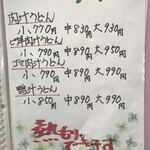 肉汁うどん
小、770円 中830円 大、930円
ピリ辛肉汁うどん
小、790円 中890円 大、950円
ゴマ肉汁うどん
小、790円 中890円 大、990円
鴨汁うどん
小、800円 中890円 大、990円
熱的
できます